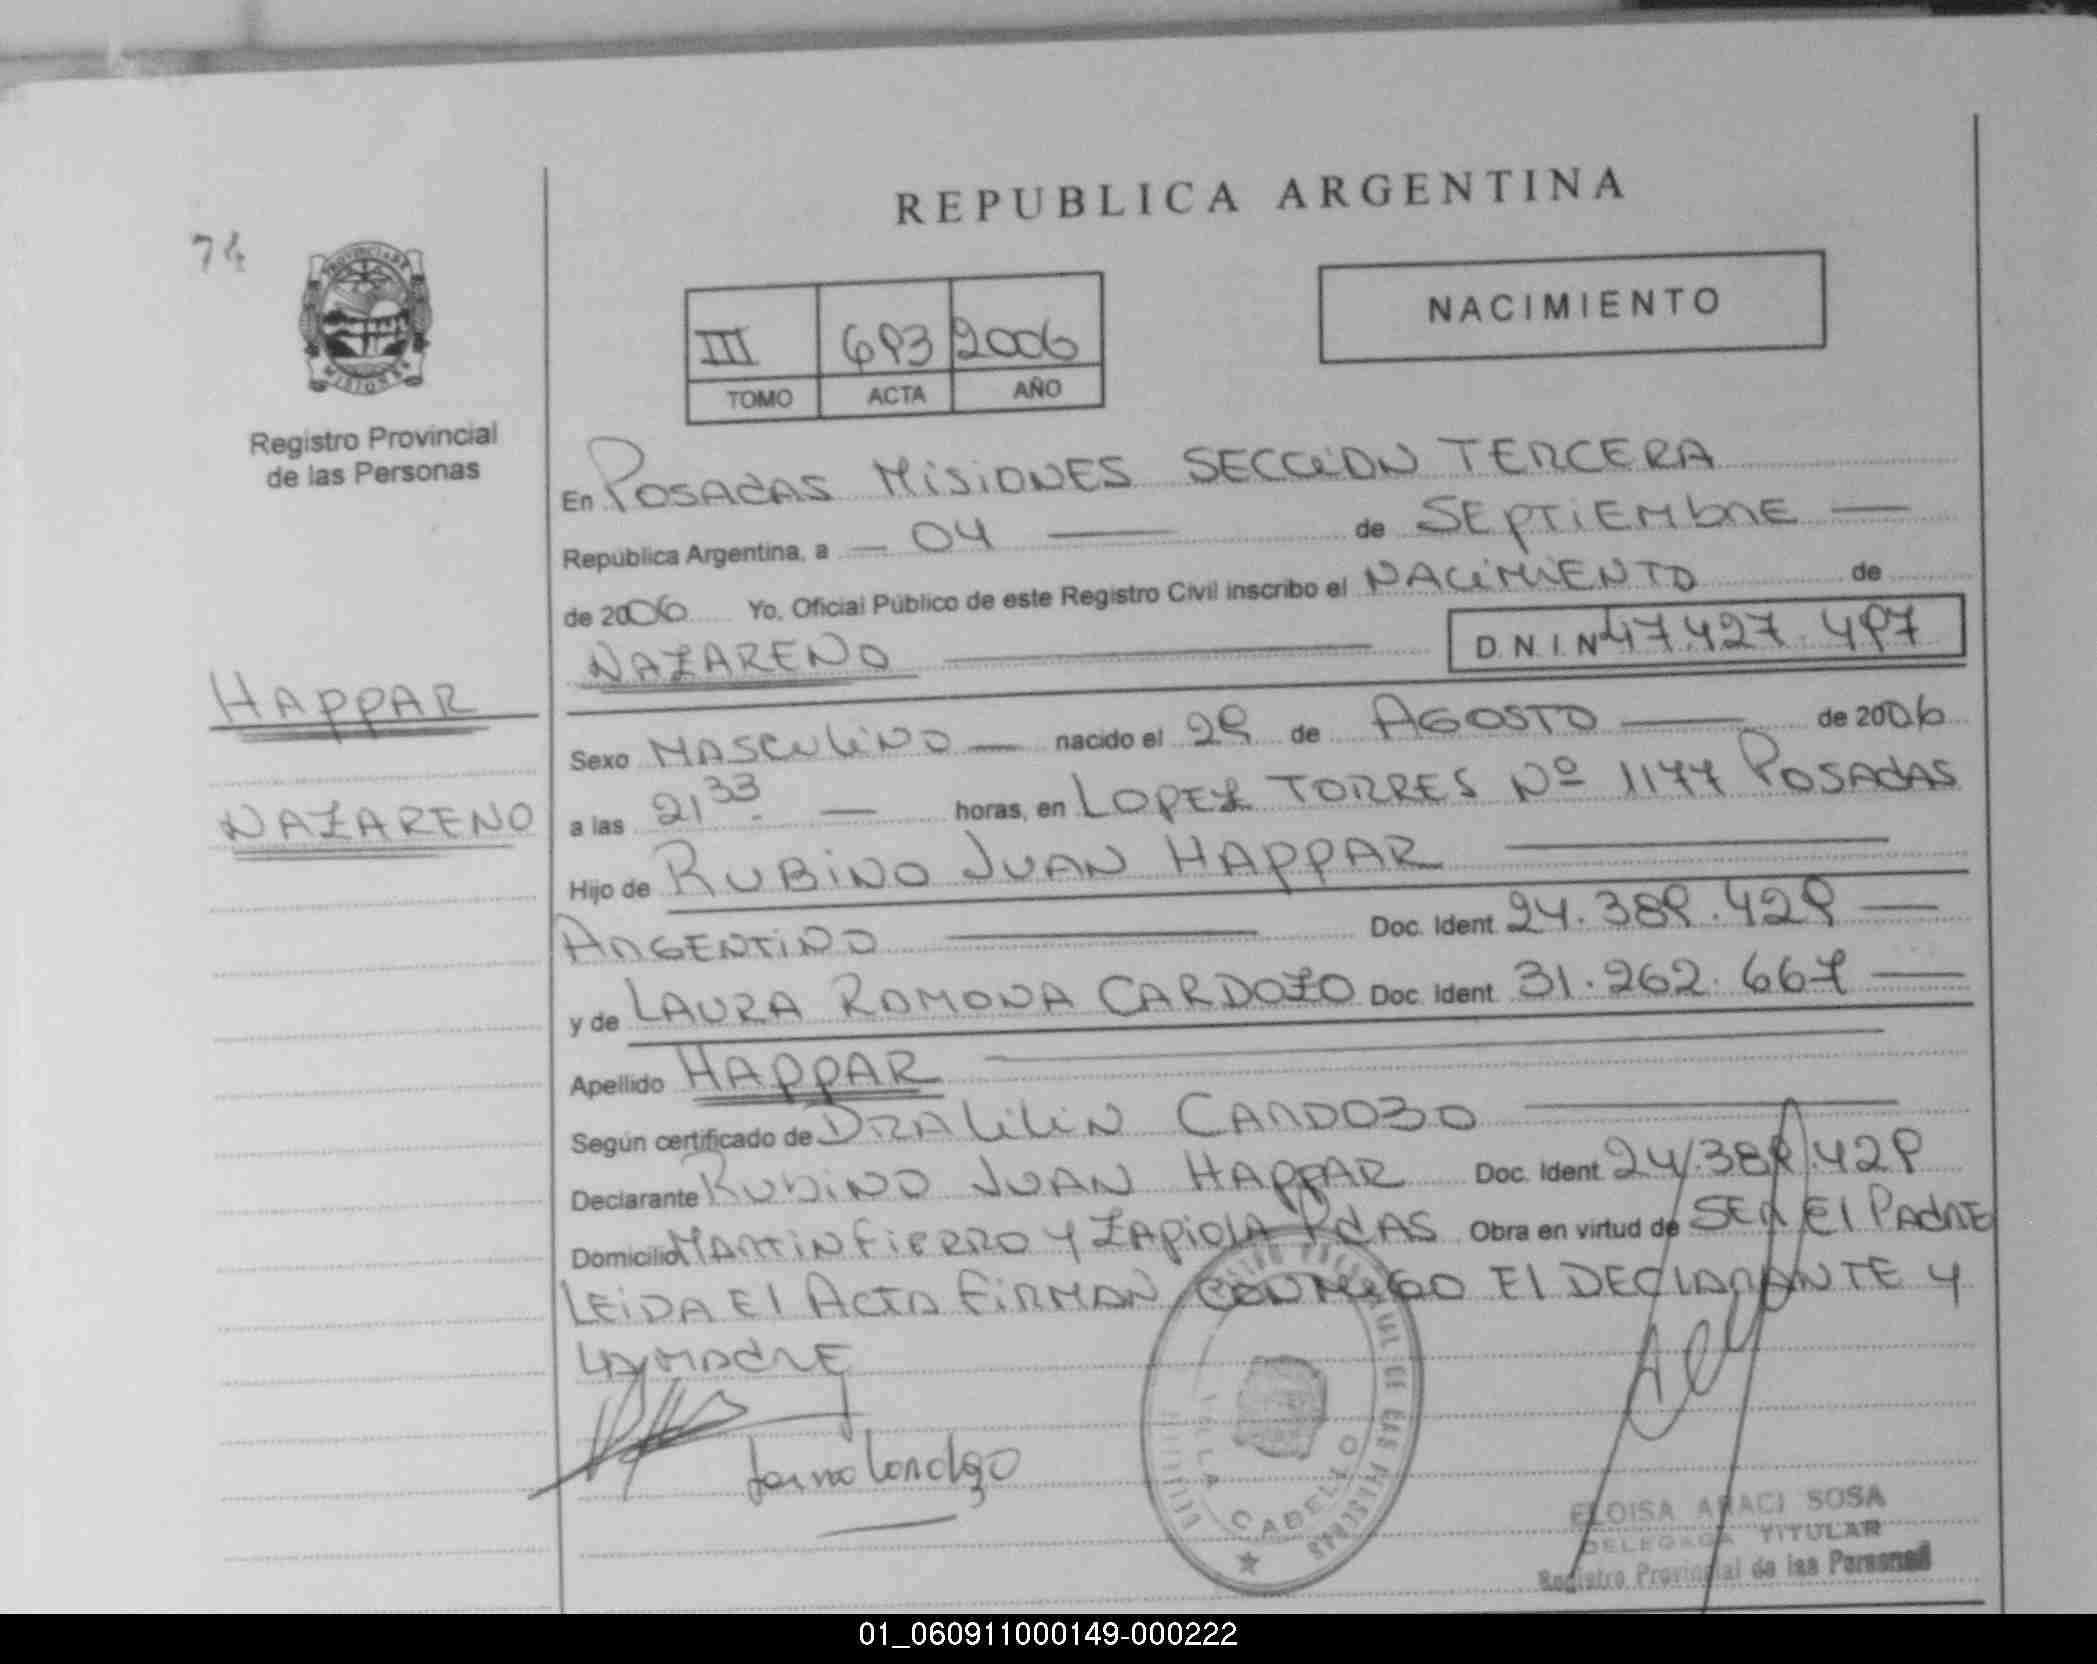 REPUBLICA ARGENTINA
74
PROVINCIA DE
MISIONES
NACIMIENTO
III 693 2006
TOMO ACTA AÑO
Registro Provincial
de las Personas
En POSADAS MISIONES SECCION TERCERA
República Argentina, a — 04 — de SEPTIEMBRE —
de 2006 Yo, Oficial Público de este Registro Civil inscribo el NACIMIENTO de
NAZARENO — D.N.I. Nº 47.427.497
HAPPAR
Sexo MASCULINO — nacido el 29 de AGOSTO — de 2006
NAZARENO
a las 21 33 — horas, en LOPEZ TORRES Nº 1177 POSADAS
Hijo de RUBINO JUAN HAPPAR —
ARGENTINO — Doc. Ident. 24.389.429 —
y de LAURA RAMONA CARDOZO Doc. Ident. 31.262.667 —
Apellido HAPPAR —
Según certificado de DRA LILIN CARDOZO —
Declarante RUBINO JUAN HAPPAR Doc. Ident. 24.389.429
Domicilio MARTIN FIERRO Y ZAPIOLA PDAS Obra en virtud de SER El PADRE
LEIDA El ACTA FIRMAN CONMIGO El DECLARANTE Y
LA MADRE
VILLA CABELLO
ELOISA ARACI SOSA
DELEGADA TITULAR
Registro Provincial de las Personas
01_060911000149-000222